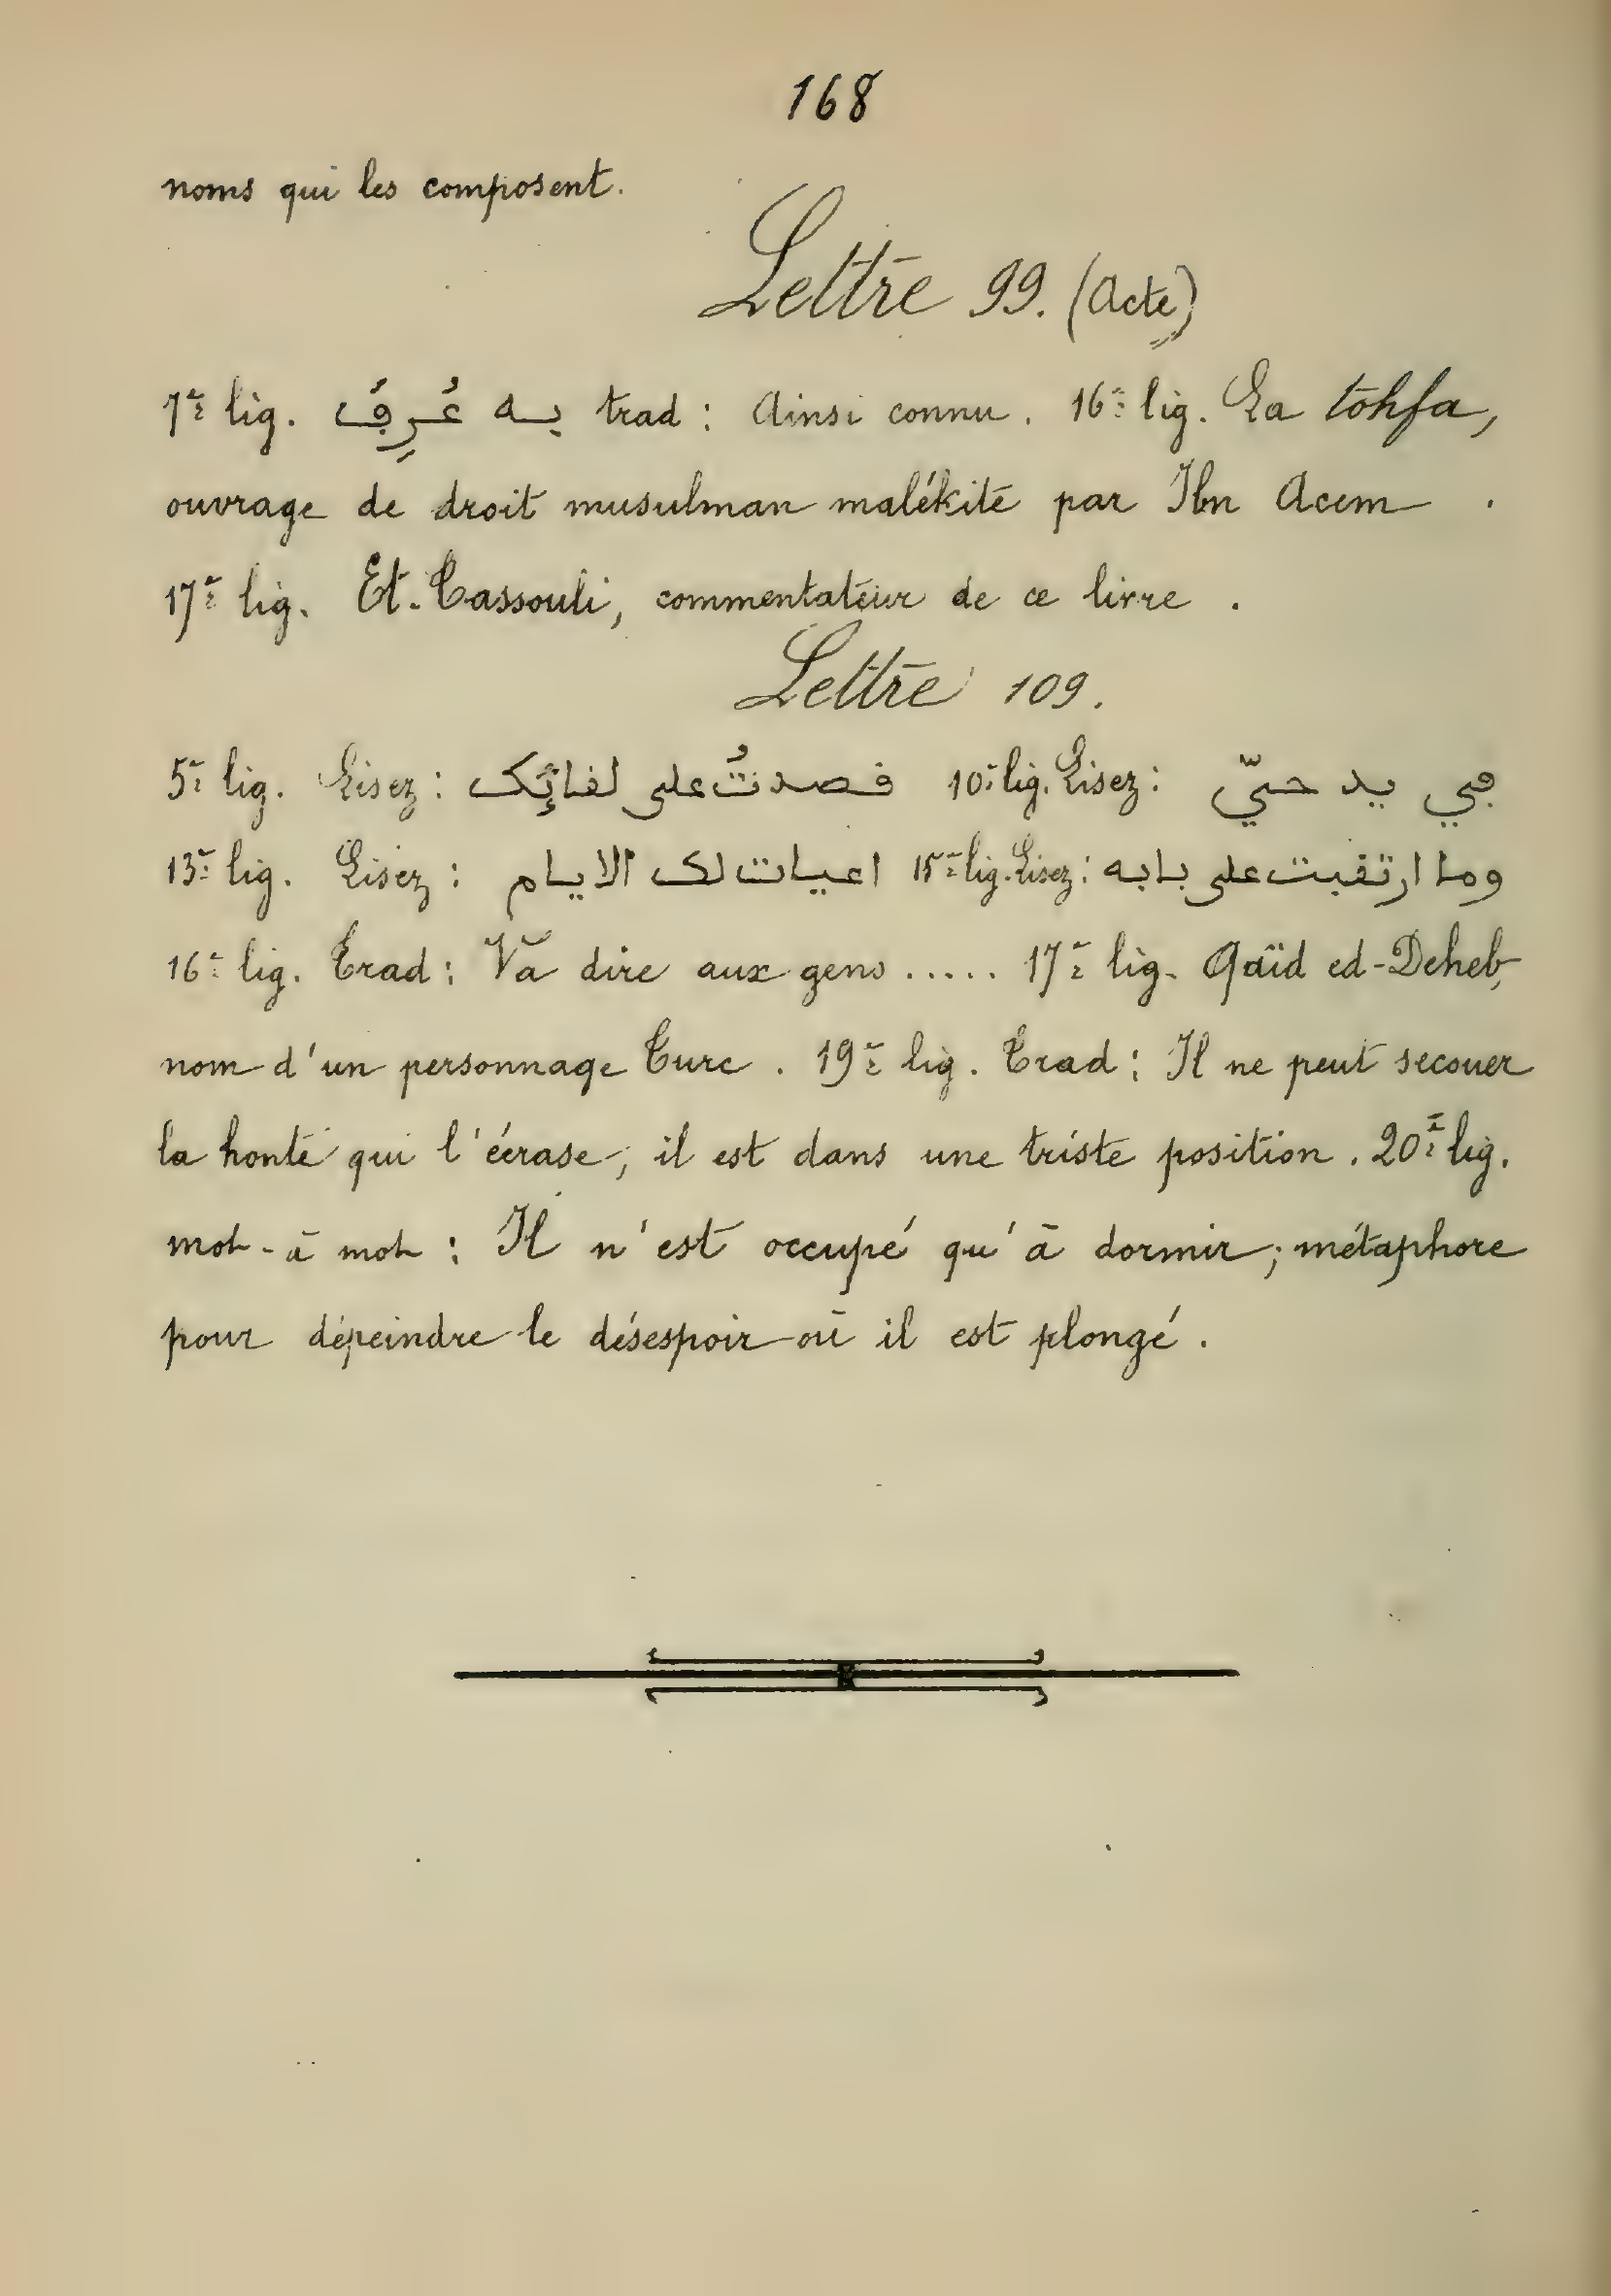 168
noms qui les composent.
Lettre 99. (Acte)
1è lig. به عُرِفَ trad : Ainsi connu. 16è lig. La tohfa,
ouvrage de droit musulman malékite par Ibn Acem .
17è lig. Et-Tassouli, commentateur de ce livre .
Lettre 109.
5è lig. Lisez : فصدتُ على لفائِك 10è lig. Lisez : ڢي يد حبّي
13è lig. Lisez : اعيات لك الايام 15è lig. Lisez : وما ارتفبت على بابه
16è lig. Trad : Va dire aux gens ..... 17è lig. Qaïd ed-Deheb,
nom d'un personnage Turc . 19è lig. Trad : Il ne peut secouer
la honte qui l'écrase ; il est dans une triste position . 20è lig.
mot-à mot : Il n'est occupé qu'à dormir ; métaphore
pour dépeindre le désespoir où il est plongé .